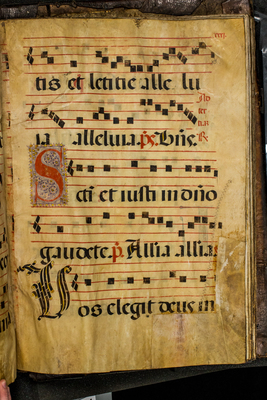 tis et letitie alle lu
ia alleluia. ps. Bñs.
Scti et iusti in dño
gaudete. p̃. Allia allia
Vos elegit deus in